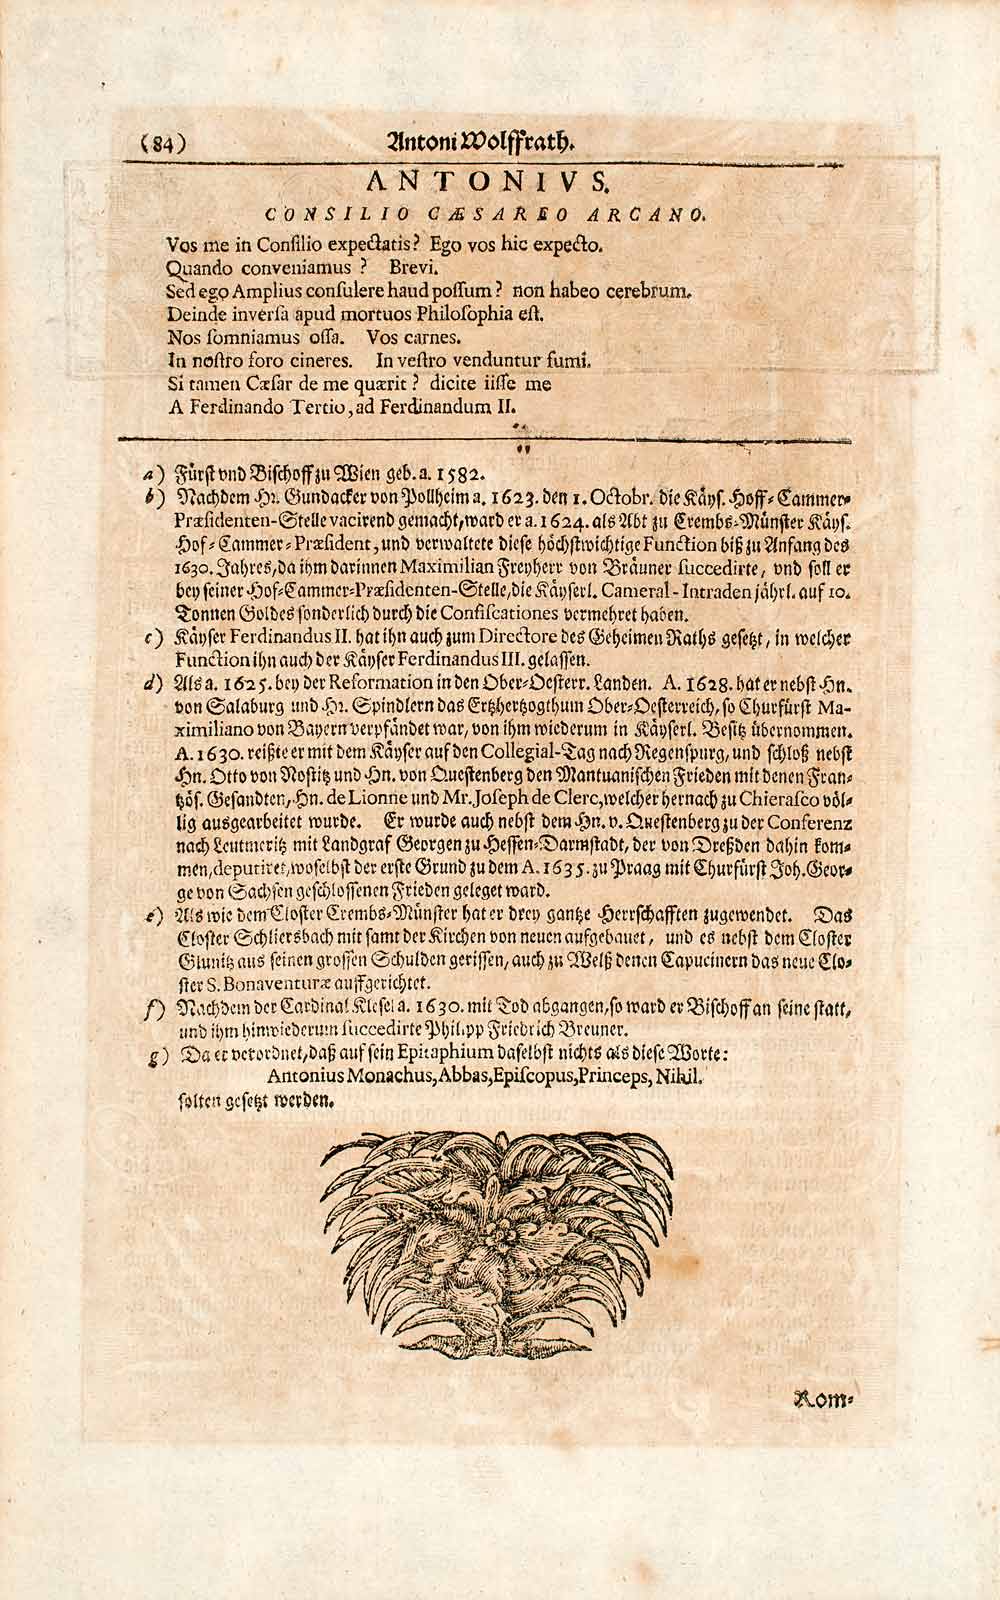 (84) Antoni Wolffrath.
ANTONIVS.
CONSILIO CÆSAREO ARCANO.
Vos me in Consilio expectatis? Ego vos hic expecto.
Quando conveniamus ? Brevi.
Sed ego Amplius consulere haud possum? non habeo cerebrum.
Deinde inversa apud mortuos Philosophia est.
Nos somniamus ossa. Vos carnes.
In nostro foro cineres. In vestro venduntur fumi.
Si tamen Cæsar de me quærit ? dicite iisse me
A Ferdinando Tertio, ad Ferdinandum II.
a) Fürst vnd Bischoff zu Wien geb. a. 1582.
b) Nachdem Hr. Gundacker von Pollheim a. 1623. den 1. Octobr. die Käys. Hoff-Cammer-
Præsidenten-Stelle vacirend gemacht, ward er a. 1624. als Abt zu Crembs-Münster Käys.
Hof-Cammer-Præsident, und verwaltete diese höchstwichtige Function biß zu Anfang des
1630. Jahres, da ihm darinnen Maximilian Freyherr von Bräuner succedirte, vnd soll er
bey seiner Hof-Cammer-Præsidenten-Stelle, die Käyserl. Cameral-Intraden jährl. auf 10.
Tonnen Goldes sonderlich durch die Confiscationes vermehret haben.
c) Käyser Ferdinandus II. hat ihn auch zum Directore des Geheimen Raths gesetzt, in welcher
Function ihn auch der Käyser Ferdinandus III. gelassen.
d) Als a. 1625. bey der Reformation in den Ober-Oesterr. Landen. A. 1628. hat er nebst Hn.
von Salaburg und Hr. Spindlern das Ertzhertzogthum Ober-Oesterreich, so Churfürst Ma-
ximiliano von Bayern verpfändet war, von ihm wiederum in Käyserl. Besitz übernommen.
A. 1630. reißte er mit dem Käyser auf den Collegial-Tag nach Regenspurg, und schloß nebst
Hn. Otto von Nostitz und Hn. von Questenberg den Mantuanischen Frieden mit denen Fran-
tzös. Gesandten, Hn. de Lionne und Mr. Joseph de Clerc, welcher hernach zu Chierasco völ-
lig ausgearbeitet wurde. Er wurde auch nebst dem Hn. v. Questenberg zu der Conferenz
nach Leutmeritz mit Landgraf Georgen zu Hessen-Darmstadt, der von Dreßden dahin kom-
men, deputiret, woselbst der erste Grund zu dem A. 1635. zu Praag mit Churfürst Joh. Geor-
ge von Sachsen geschlossenen Frieden geleget ward.
e) Als wie dem Closter Crembs-Münster hat er drey gantze Herrschafften zugewendet. Das
Closter Schliersbach mit samt der Kirchen von neuen aufgebauet, und es nebst dem Closter
Glunitz aus seinen grossen Schulden gerissen, auch zu Welß denen Capucinern das neue Clo-
ster S. Bonaventuræ auffgerichtet.
f) Nachdem der Cardinal Klesel a. 1630. mit Tod abgangen, so ward er Bischoff an seine statt,
und ihm hinwiederum succedirte Philipp Friedrich Breuner.
g) Da er verordnet, daß auf sein Epitaphium daselbst nichts als diese Worte:
Antonius Monachus, Abbas, Episcopus, Princeps, Nihil.
solten gesetzt werden.
Rom-